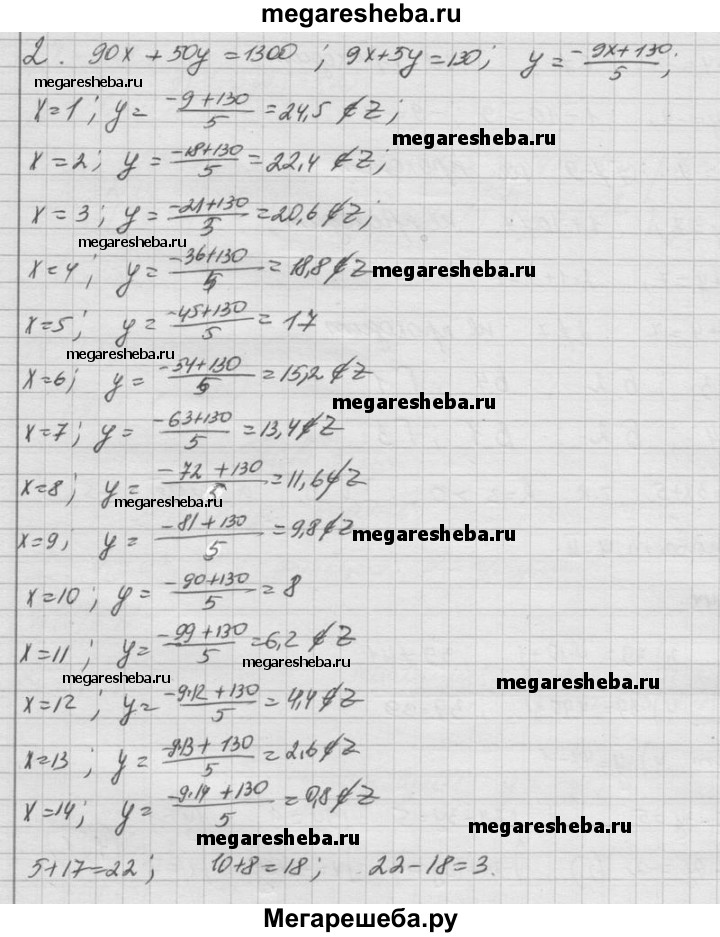 megaresheba.ru
2. 90x + 50y = 1300 ; 9x+5y = 130; y = (-9x+130)/5 ;
megaresheba.ru
x=1 ; y = (-9+130)/5 = 24,5 ∉ Z ;
megaresheba.ru
x = 2 ; y = (-18+130)/5 = 22,4 ∉ Z ;
x = 3 ; y = (-21+130)/5 = 20,6 ∉ Z ;
megaresheba.ru
x=4 ; y = (-36+130)/5 = 18,8 ∉ Z
megaresheba.ru
x=5 ; y = (-45+130)/5 = 17
megaresheba.ru
x=6 ; y = (-54+130)/5 = 15,2 ∉ Z
megaresheba.ru
x=7 ; y = (-63+130)/5 = 13,4 ∉ Z
x=8 ; y = (-72+130)/5 = 11,6 ∉ Z
megaresheba.ru
x=9, y = (-81+130)/5 = 9,8 ∉ Z
megaresheba.ru
x=10 ; y = (-90+130)/5 = 8
x=11 ; y = (-99+130)/5 = 6,2 ∉ Z
megaresheba.ru
megaresheba.ru
megaresheba.ru
x=12 ; y = (-9·12+130)/5 = 4,4 ∉ Z
x=13 ; y = (-9·13+130)/5 = 2,6 ∉ Z
x=14 ; y = (-9·14+130)/5 = 0,8 ∉ Z
megaresheba.ru
megaresheba.ru
5+17=22 ; 10+8=18 ; 22-18=3.
Мегарешеба.ру